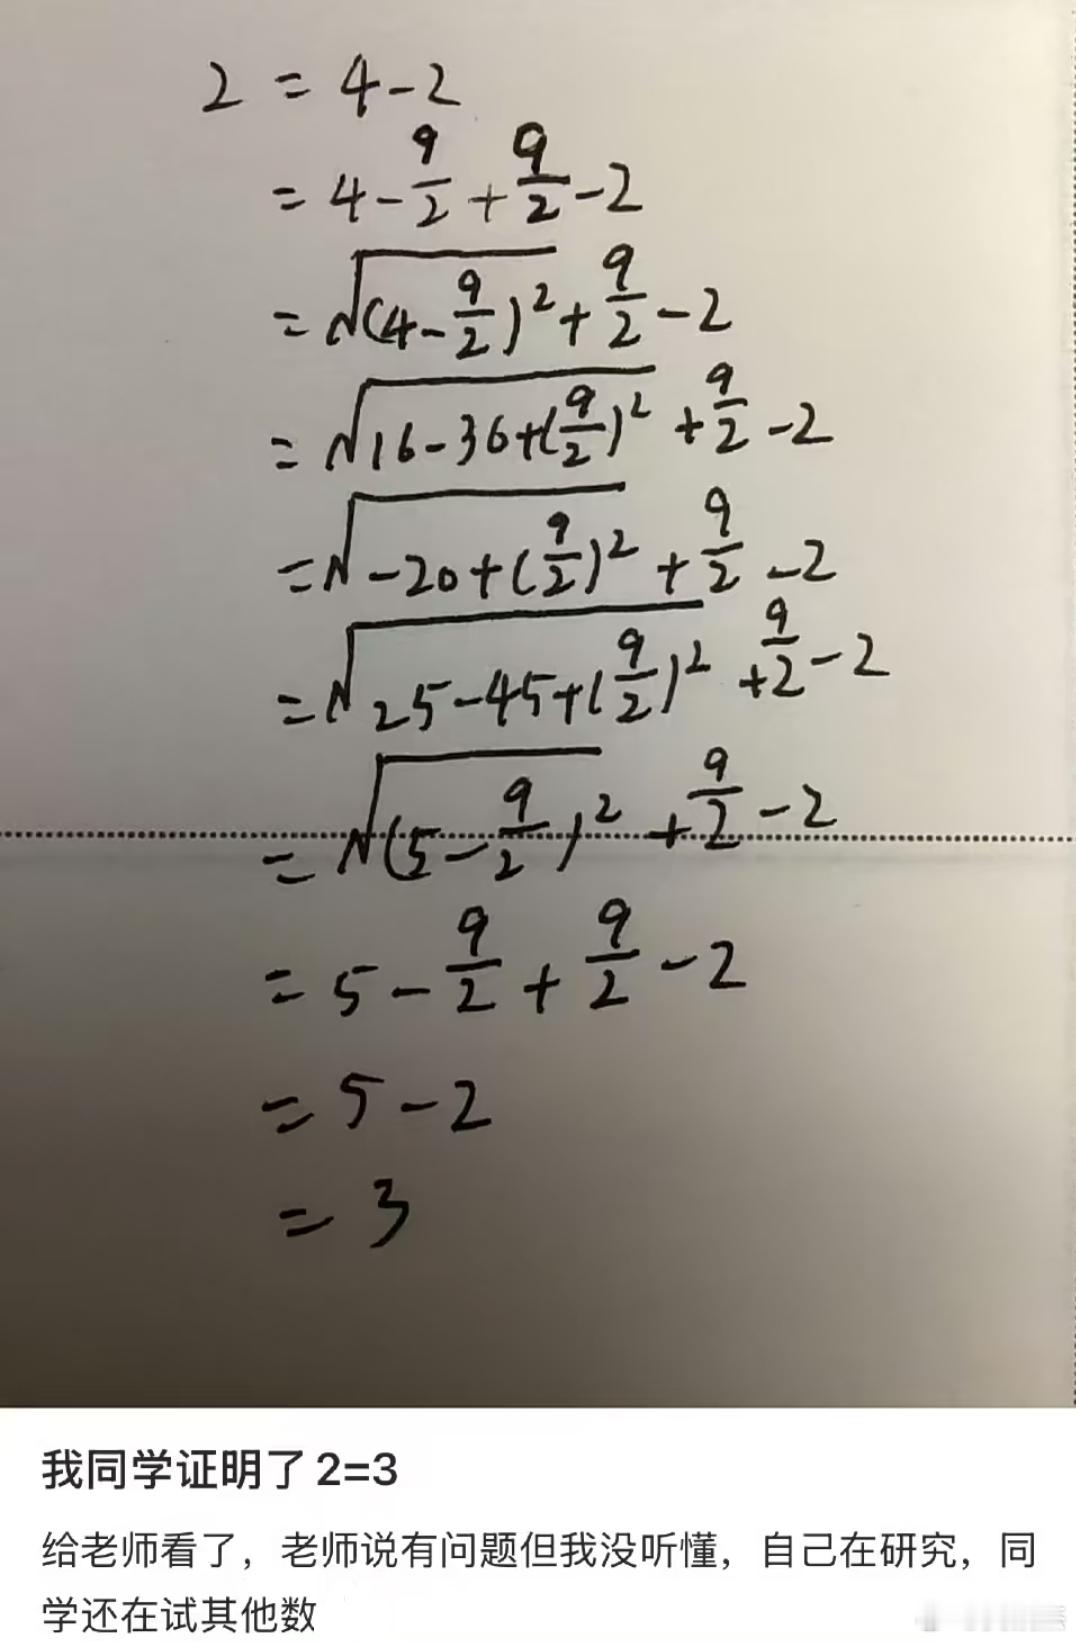 2 = 4-2
= 4-9/2+9/2-2
= √(4-9/2)²+9/2-2
= √16-36+(9/2)²+9/2-2
= √-20+(9/2)²+9/2-2
= √25-45+(9/2)²+9/2-2
= √(5-9/2)²+9/2-2
= 5-9/2+9/2-2
= 5-2
= 3
我同学证明了2=3
给老师看了，老师说有问题但我没听懂，自己在研究，同
学还在试其他数